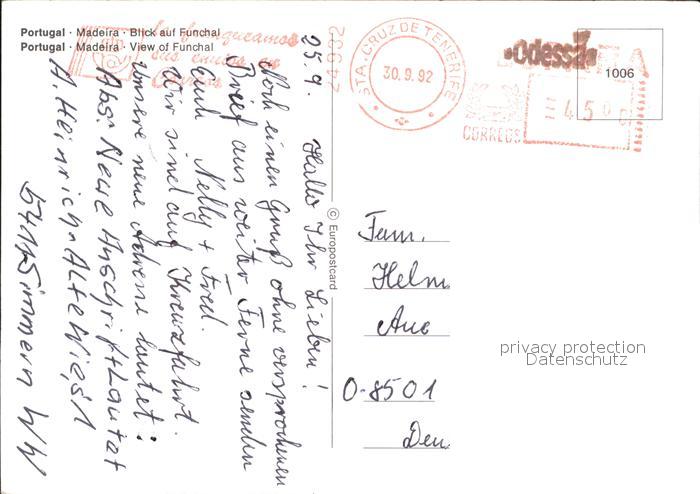 Portugal · Madeira · Blick auf Funchal
Portugal · Madeira · View of Funchal
STA. CRUZ DE TENERIFE
30.9.92
Odessa
1006
CORREOS
© Europostcard
25.9. Hallo Ihr Lieben!
Noch einen Gruß ohne versprochenen
Brief aus weiter Ferne senden
Euch Nelly + Fred.
Wir sind auf Kreuzfahrt.
Unsere neue Adresse lautet:
Abs: Neue Anschrift Lautat
A. Heinrich-Alte Wies 1
5411 Simmern WW
Fam.
Helm
Aue
O-8501
privacy protection
Datenschutz